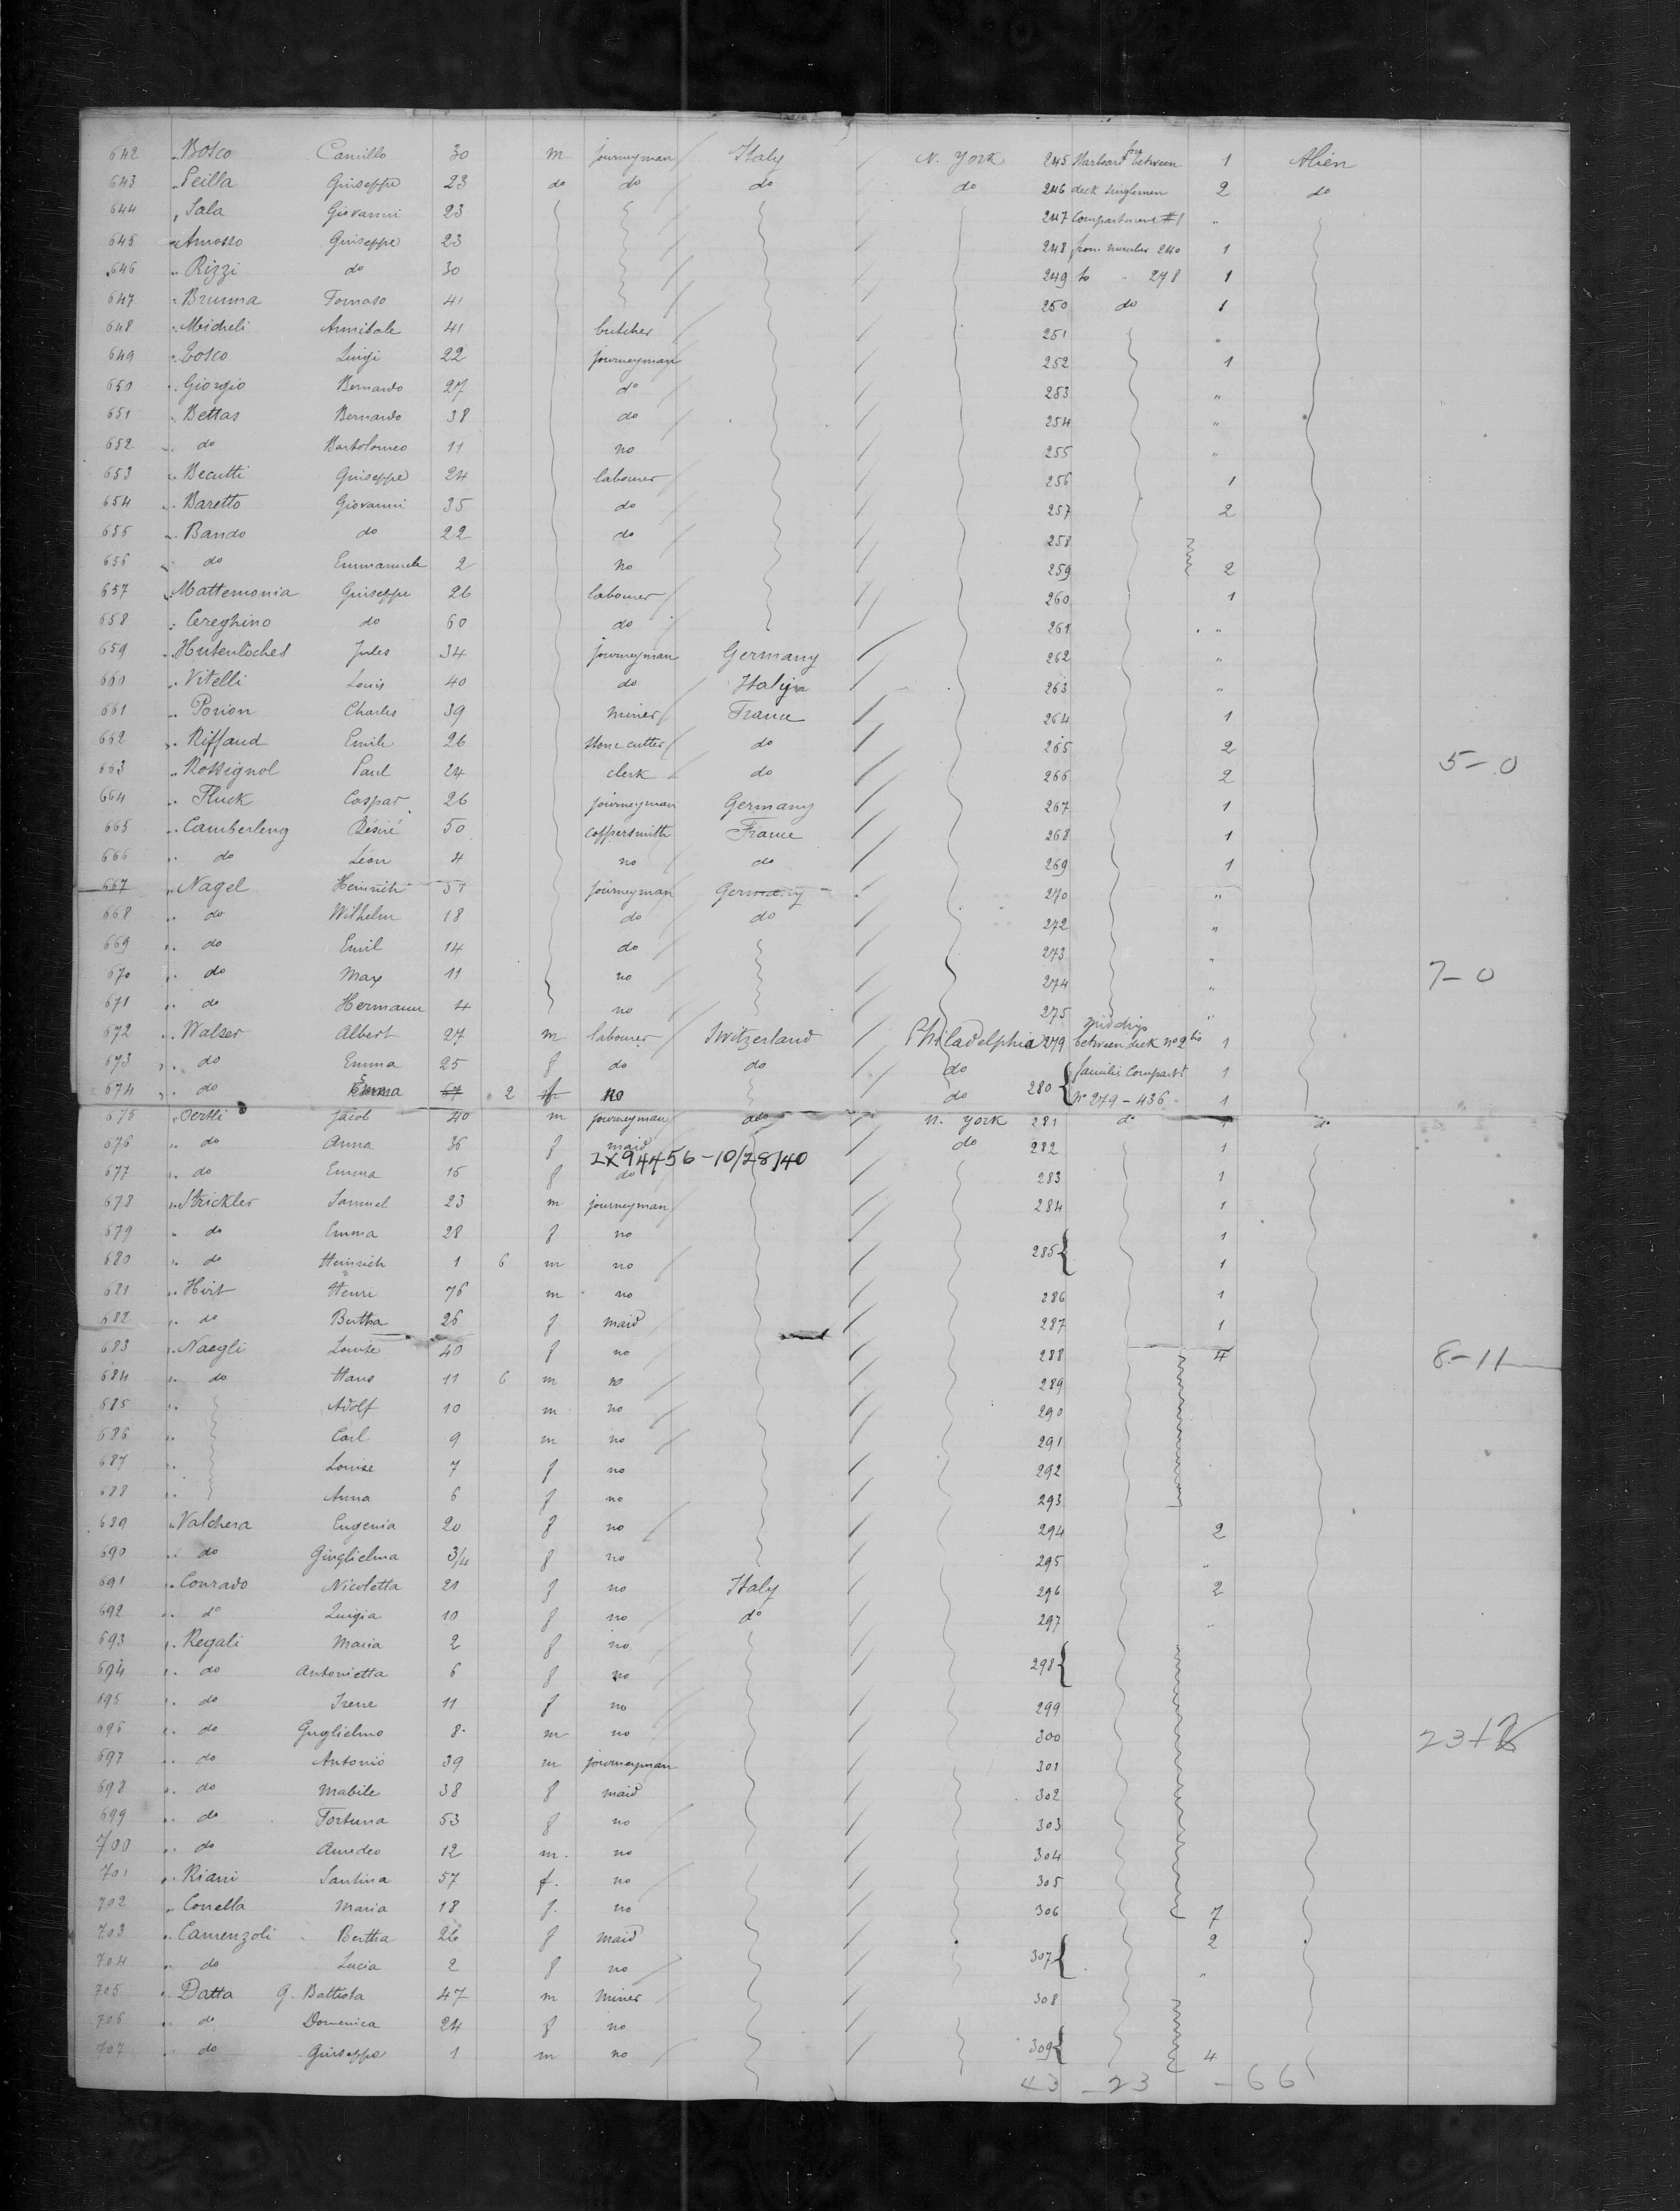 642 " Bosco Camillo 30 m journeyman Italy N. York 245 Starboard for between 1 Alien
643 " Peilla Giuseppe 23 do do do do 246 deck singlemen 2 do
644 " Sala Giovanni 23 247 Compartment #1 "
645 " Amosso Giuseppe 23 248 from number 240 1
646 " Rizzi do 30 249 to - 278 1
647 " Brunna Tomaso 41 250 do 1
648 " Micheli Annibale 41 butcher 251 "
649 " Losco Luigi 22 journeyman 252 1
650 " Giorgio Bernardo 27 do 253 "
651 " Bettas Bernardo 38 do 254 "
652 " do Bartolomeo 11 no 255 "
653 " Becutti Giuseppe 24 labourer 256 1
654 " Baretto Giovanni 35 do 257 2
655 " Bando do 22 do 258
656 " do Emmanuele 2 no 259 2
657 " Mattemonia Giuseppe 26 labourer 260 1
658 " Cereghino do 60 do 261 "
659 " Hutenloches Jules 34 journeyman Germany 262 "
660 " Vitelli Louis 40 do Italy 263 "
661 " Porion Charles 39 miner France 264 1
662 " Riffaud Emile 26 stone cutter do 265 2
663 " Rossignol Paul 24 clerk do 266 2 5-0
664 " Fluck Caspar 26 journeyman Germany 267 1
665 " Camberleng Désiré 50 coppersmith France 268 1
666 " do Léon 4 no do 269 1
667 " Nagel Heinrich 51 journeyman Germany 270 "
668 " do Wilhelm 18 do do 272 "
669 " do Emil 14 do 273 "
670 " do Max 11 no 274 " 7-0
671 " do Hermann 4 no 275 "
672 " Walser Albert 27 m labourer Switzerland Philadelphia 279 between deck no 2 1
673 " do Emma 25 f do do do familie Compartt 1
674 " do Emma 67 2 f no do 280 No 279-436 1
675 " Oertli Jacob 40 m journeyman do N. York 281 do 1 do
676 " do Anna 36 f maid do 282 1
2X94456-10/28/40
677 " do Emma 15 f do 283 1
678 " Strickler Samuel 23 m journeyman 284 1
679 " do Emma 28 f no 1
285
680 " do Heinrich 1 6 m no 1
681 " Hirt Henri 76 m no 286 1
682 " do Bertha 26 f maid 287 1
683 " Naegli Louise 40 f no 288 4 8-11
684 " do Hans 11 6 m no 289
685 " Adolf 10 m no 290
686 " Carl 9 m no 291
687 " Louise 7 f no 292
688 " Anna 6 f no 293
689 " Valchera Eugenia 20 f no 294 2
690 " do Giuglielma 3/4 f no 295 "
691 " Conrado Nicoletta 21 f no Italy 296 2
692 " do Luigia 10 f no do 297 "
693 " Regali Maria 2 f no
298
694 " do Antonietta 6 f no
695 " do Irene 11 f no 299
696 " do Guglielmo 8 m no 300
697 " do Antonio 39 m journeyman 301
698 " do Mabile 38 f maid 302
699 " do Fortuna 53 f no 303
700 " do Amedeo 12 m no 304
701 " Riani Santina 57 f. no 305
702 " Conella Maria 18 f. no 306 7
703 " Camenzoli Bertha 26 f maid 2
307
704 " do Lucia 2 f no "
705 " Datta G. Battista 47 m miner 308
706 " do Domenica 24 f no
309
707 " do Giuseppe 1 m no 4
43 - 23 - 66